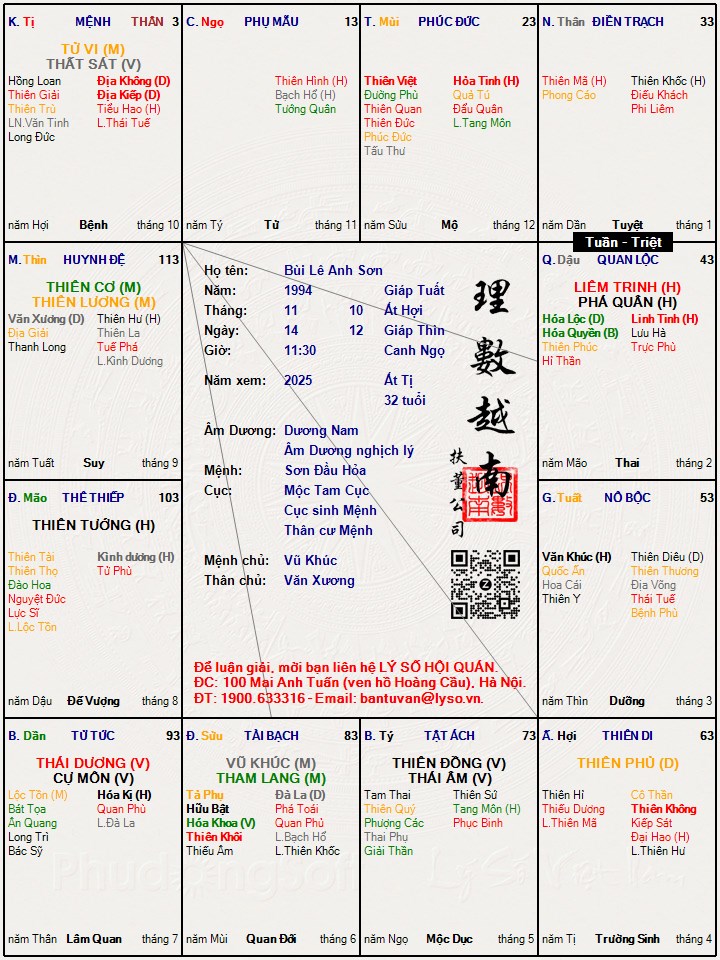 K. Tị MỆNH THÂN 3
TỬ VI (M)
THẤT SÁT (V)
Hồng Loan Địa Không (D)
Thiên Giải Địa Kiếp (D)
Thiên Trù Tiểu Hao (H)
LN.Văn Tinh L.Thái Tuế
Long Đức
năm Hợi Bệnh tháng 10
C. Ngọ PHỤ MẪU 13
Thiên Hình (H)
Bạch Hổ (H)
Tướng Quân
năm Tý Tử tháng 11
T. Mùi PHÚC ĐỨC 23
Thiên Việt Hỏa Tinh (H)
Đường Phù Quả Tú
Thiên Quan Đẩu Quân
Thiên Đức L.Tang Môn
Phúc Đức
Tấu Thư
năm Sửu Mộ tháng 12
N. Thân ĐIỀN TRẠCH 33
Thiên Mã (H) Thiên Khốc (H)
Phong Cáo Điếu Khách
Phi Liêm
năm Dần Tuyệt tháng 1
Tuần - Triệt
M. Thìn HUYNH ĐỆ 113
THIÊN CƠ (M)
THIÊN LƯƠNG (M)
Văn Xương (D) Thiên Hư (H)
Địa Giải Thiên La
Thanh Long Tuế Phá
L.Kình Dương
năm Tuất Suy tháng 9
Họ tên: Bùi Lê Anh Sơn
Năm: 1994 Giáp Tuất
Tháng: 11 10 Ất Hợi
Ngày: 14 12 Giáp Thìn
Giờ: 11:30 Canh Ngọ
Năm xem: 2025 Ất Tị
32 tuổi
Âm Dương: Dương Nam
Âm Dương nghịch lý
Mệnh: Sơn Đầu Hỏa
Cục: Mộc Tam Cục
Cục sinh Mệnh
Thân cư Mệnh
Mệnh chủ: Vũ Khúc
Thân chủ: Văn Xương
理數越南
扶董公司
Để luận giải, mời bạn liên hệ LÝ SỐ HỘI QUÁN.
ĐC: 100 Mai Anh Tuấn (ven hồ Hoàng Cầu), Hà Nội.
ĐT: 1900.633316 - Email: bantuvan@lyso.vn.
Q. Dậu QUAN LỘC 43
LIÊM TRINH (H)
PHÁ QUÂN (H)
Hóa Lộc (D) Linh Tinh (H)
Hóa Quyền (B) Lưu Hà
Thiên Phúc Trực Phù
Hỉ Thần
năm Mão Thai tháng 2
Đ. Mão THÊ THIẾP 103
THIÊN TƯỚNG (H)
Thiên Tài Kình dương (H)
Thiên Thọ Tử Phù
Đào Hoa
Nguyệt Đức
Lực Sĩ
L.Lộc Tồn
năm Dậu Đế Vượng tháng 8
G. Tuất NÔ BỘC 53
Văn Khúc (H) Thiên Diêu (D)
Quốc Ấn Thiên Thương
Hoa Cái Địa Võng
Thiên Y Thái Tuế
Bệnh Phù
năm Thìn Dưỡng tháng 3
B. Dần TỬ TỨC 93
THÁI DƯƠNG (V)
CỰ MÔN (V)
Lộc Tồn (M) Hóa Kị (H)
Bát Tọa Quan Phù
Ân Quang L.Đà La
Long Trì
Bác Sỹ
năm Thân Lâm Quan tháng 7
Đ. Sửu TÀI BẠCH 83
VŨ KHÚC (M)
THAM LANG (M)
Tả Phụ Đà La (D)
Hữu Bật Phá Toái
Hóa Khoa (V) Quan Phủ
Thiên Khôi L.Bạch Hổ
Thiếu Âm L.Thiên Khốc
năm Mùi Quan Đới tháng 6
B. Tý TẬT ÁCH 73
THIÊN ĐỒNG (V)
THÁI ÂM (V)
Tam Thai Thiên Sứ
Thiên Quý Tang Môn (H)
Phượng Các Phục Binh
Thai Phụ
Giải Thần
năm Ngọ Mộc Dục tháng 5
Ấ. Hợi THIÊN DI 63
THIÊN PHỦ (D)
Thiên Hỉ Cô Thần
Thiếu Dương Thiên Không
L.Thiên Mã Kiếp Sát
Đại Hao (H)
L.Thiên Hư
năm Tị Trường Sinh tháng 4